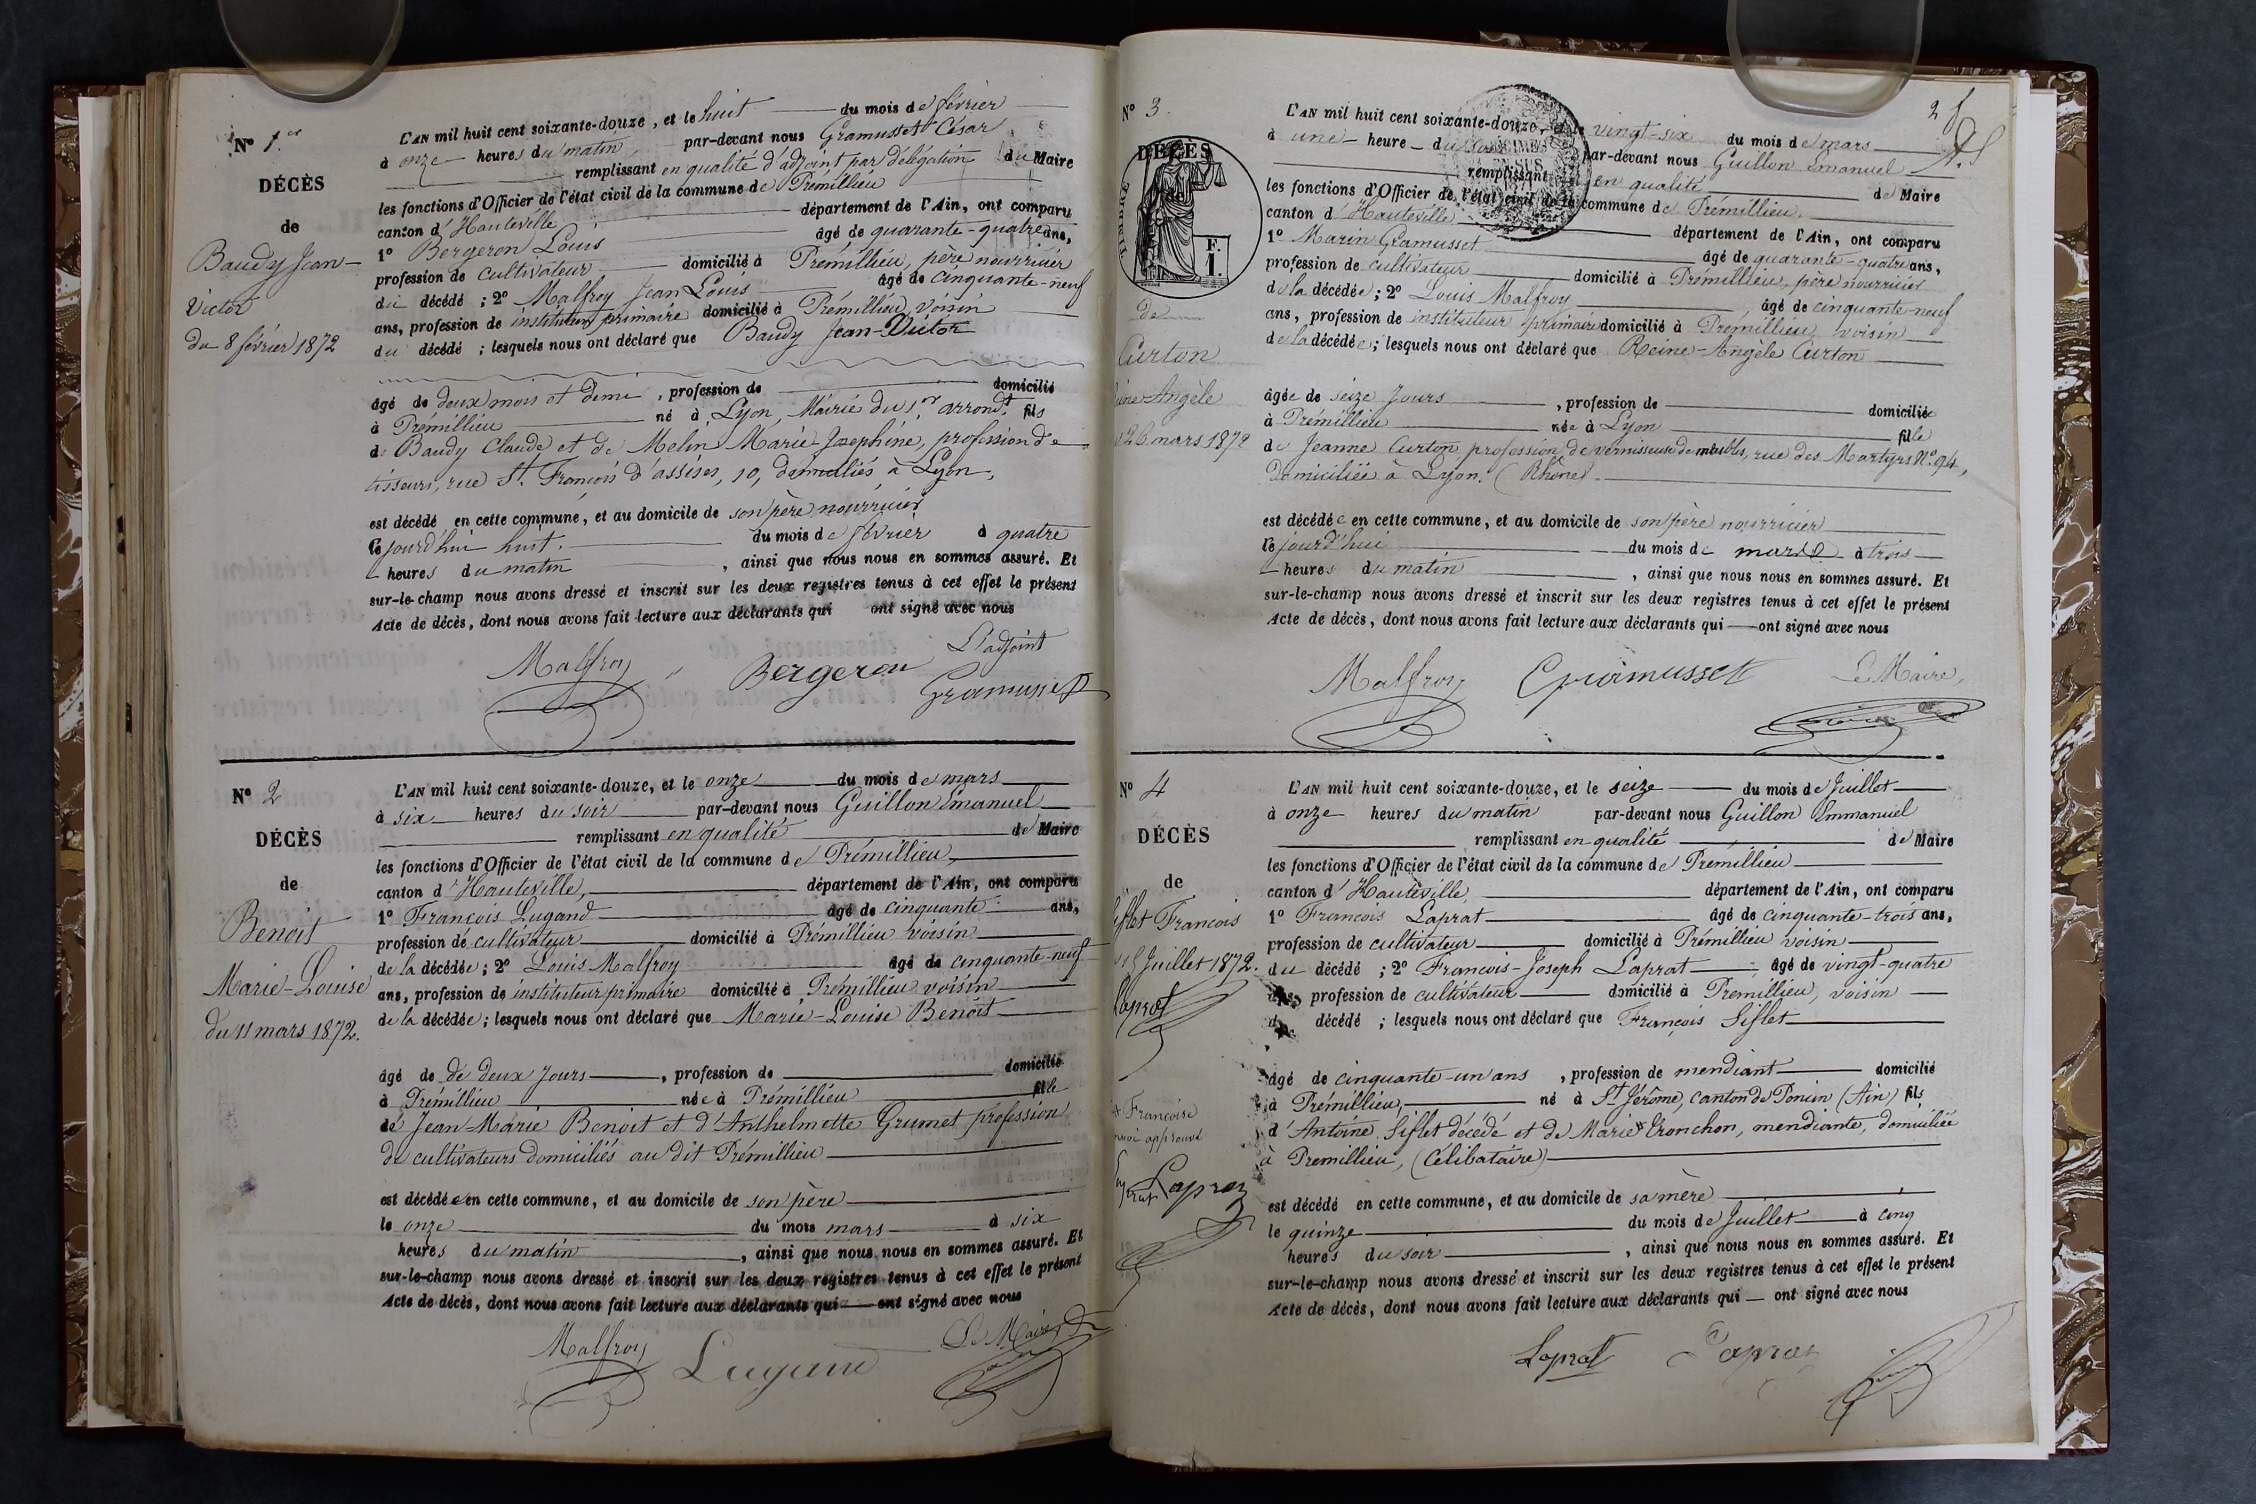 N° 1er
DÉCÈS
de
Baudy Jean-
Victor
du 8 février 1872
L'AN mil huit cent soixante-douze, et le huit du mois de février
à onze heures du matin par-devant nous Gramusset César
remplissant en qualité d'adjoint par délégation du Maire
les fonctions d'Officier de l'état civil de la commune de Prémillieu
canton d'Hauteville département de l'Ain, ont comparu
1° Bergeron Louis âgé de quarante-quatre ans,
profession de cultivateur domicilié à Prémillieu, père nourricier
du décédé ; 2° Malfroy Jean Louis âgé de cinquante-neuf
ans, profession de instituteur primaire domicilié à Prémillieu voisin
du décédé ; lesquels nous ont déclaré que Baudy Jean-Victor
âgé de deux mois et demi, profession de domicilié
à Prémillieu né à Lyon, Mairie du 1er arrondt. fils
de Baudy Claude et de Melin Marie Josephine, profession de
tisseurs, rue St. François d'assises, 10, domiciliés à Lyon,
est décédé en cette commune, et au domicile de son père nourricier
le jourd'hui huit. du mois de février à quatre
heures du matin, ainsi que nous nous en sommes assuré. Et
sur-le-champ nous avons dressé et inscrit sur les deux registres tenus à cet effet le présent
Acte de décès, dont nous avons fait lecture aux déclarants qui ont signé avec nous
L'adjoint
Malfroy Bergeron Gramusset
N° 2
DÉCÈS
de
Benoit
Marie-Louise
du 11 mars 1872.
L'AN mil huit cent soixante-douze, et le onze du mois de mars
à six heures du soir par-devant nous Guillon Emanuel
remplissant en qualité de Maire
les fonctions d'Officier de l'état civil de la commune de Prémillieu
canton d'Hauteville, département de l'Ain, ont comparu
1° François Lugand âgé de cinquante ans,
profession de cultivateur domicilié à Prémillieu voisin
de la décédée ; 2° Louis Malfroy âgé de cinquante-neuf
ans, profession de instituteur primaire domicilié à Prémillieu voisin
de la décédée ; lesquels nous ont déclaré que Marie-Louise Benoit
âgé de de deux jours, profession de domicilié
à Prémillieu née à Prémillieu fille
de Jean-Marie Benoit et d'Anthelmette Grumet profession
de cultivateurs domiciliés au dit Prémillieu
est décédée en cette commune, et au domicile de son père
le onze du mois mars à six
heures du matin, ainsi que nous nous en sommes assuré. Et
sur-le-champ nous avons dressé et inscrit sur les deux registres tenus à cet effet le présent
Acte de décès, dont nous avons fait lecture aux déclarants qui ont signé avec nous
Malfroy Lugand Le Maire
N° 3.
2
DÉCÈS
TIMBRE
F.
1.
De
Curton
Reine Angèle
26 mars 1872
L'AN mil huit cent soixante-douze, et le vingt-six du mois de mars
à une heure du par-devant nous Guillon Emanuel
remplissant en qualité de Maire
les fonctions d'Officier de l'état civil de la commune de Prémillieu
canton d'Hauteville département de l'Ain, ont comparu
1° Marin Gramusset âgé de quarante-quatre ans,
profession de cultivateur domicilié à Prémillieu, père nourricier
de la décédée ; 2° Louis Malfroy âgé de cinquante neuf
ans, profession de instituteur primaire domicilié à Prémillieu voisin
de la décédée ; lesquels nous ont déclaré que Reine-Angèle Curton
âgée de seize jours, profession de domiciliée
à Prémillieu née à Lyon fille
de Jeanne Curton profession de vernisseuse de meubles, rue des Martyrs N° 94,
domiciliée à Lyon. (Rhône).
est décédée en cette commune, et au domicile de son père nourricier
le jourd'hui du mois de mars à trois
heures du matin, ainsi que nous nous en sommes assuré. Et
sur-le-champ nous avons dressé et inscrit sur les deux registres tenus à cet effet le présent
Acte de décès, dont nous avons fait lecture aux déclarants qui ont signé avec nous
Malfroy Gramusset Le Maire,
N° 4
DÉCÈS
de
Siflet François
15 Juillet 1872.
Laprat
Françoise
approuvé
Laprat
L'AN mil huit cent soixante-douze, et le seize du mois de Juillet
à onze heures du matin par-devant nous Guillon Emmanuel
remplissant en qualité de Maire
les fonctions d'Officier de l'état civil de la commune de Prémillieu
canton d'Hauteville, département de l'Ain, ont comparu
1° François Laprat âgé de cinquante-trois ans,
profession de cultivateur domicilié à Prémillieu voisin
du décédé ; 2° François-Joseph Laprat âgé de vingt-quatre
ans, profession de cultivateur domicilié à Premillieu, voisin
du décédé ; lesquels nous ont déclaré que François Siflet
âgé de cinquante-un ans, profession de mendiant domicilié
à Prémillieu, né à St Jérôme, canton de Poncin (Ain) fils
d'Antoine Siflet décédé et de Marie Tronchon, mendiante, domiciliée
à Premillieu, (Célibataire)
est décédé en cette commune, et au domicile de sa mère
le quinze du mois de Juillet à cinq
heures du soir, ainsi que nous nous en sommes assuré. Et
sur-le-champ nous avons dressé et inscrit sur les deux registres tenus à cet effet le présent
Acte de décès, dont nous avons fait lecture aux déclarants qui ont signé avec nous
Laprat Laprat